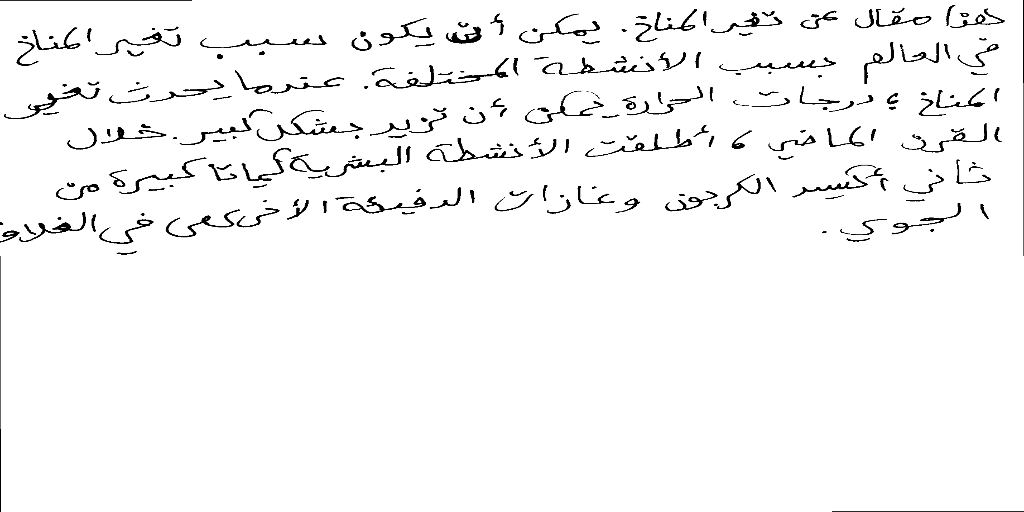 هذا مقال عن تغير المناخ. يمكن أن يكون سبب تغير المناخ
في العالم بسبب الأنشطة المختلفة. عندما يحدث تغير
المناخ ، درجات الحرارة يمكن أن تزيد بشكل كبير. خلال
القرن الماضي ، أطلقت الأنشطة البشرية كمياتا كبيرة من
ثاني أكسيد الكربون وغازات الدفيئة الأخرى في الغلاف
الجوي.